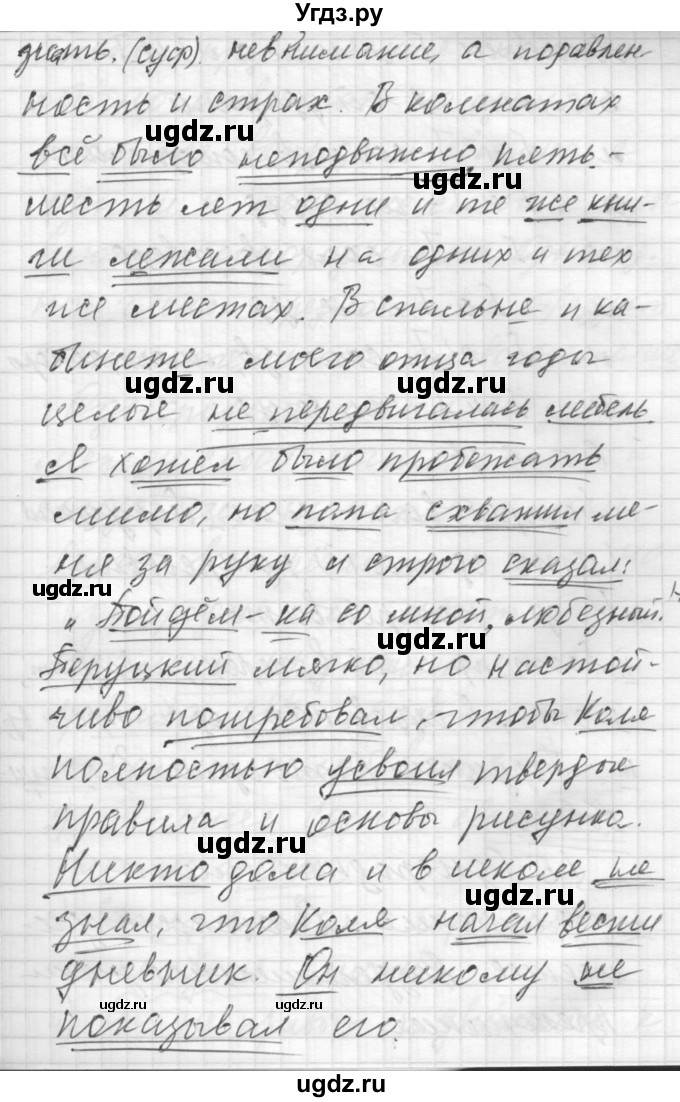 Угдз.ру
(суф). невнимание, а подавлен-
ность и страх. В комнатах
ugdz.ru ugdz.ru
всё было неподважно пять-
ugdz.ru
шесть лет одни и те же кни-
ги лежали на одних и тех
же местах. В спальне и ка-
бинете моего отца годы
ugdz.ru ugdz.ru
целые не передвигалась мебель.
Я хотел было пробежать
мимо, но папа схватил ме-
ня за руку и строго сказал:
ugdz.ru
„Пойдём-ка со мной, любезный.
ugdz.ru
Беруцкий мягко, но настой-
чиво потребовал, чтобы Коля
ugdz.ru
полностью усвоил твердые
правила и основы рисунка.
ugdz.ru
Никто дома и в школе не
ugdz.ru
знал, что Коля начал вести
дневник. Он никому не
ugdz.ru ugdz.ru
показывал его.
ugdz.ru